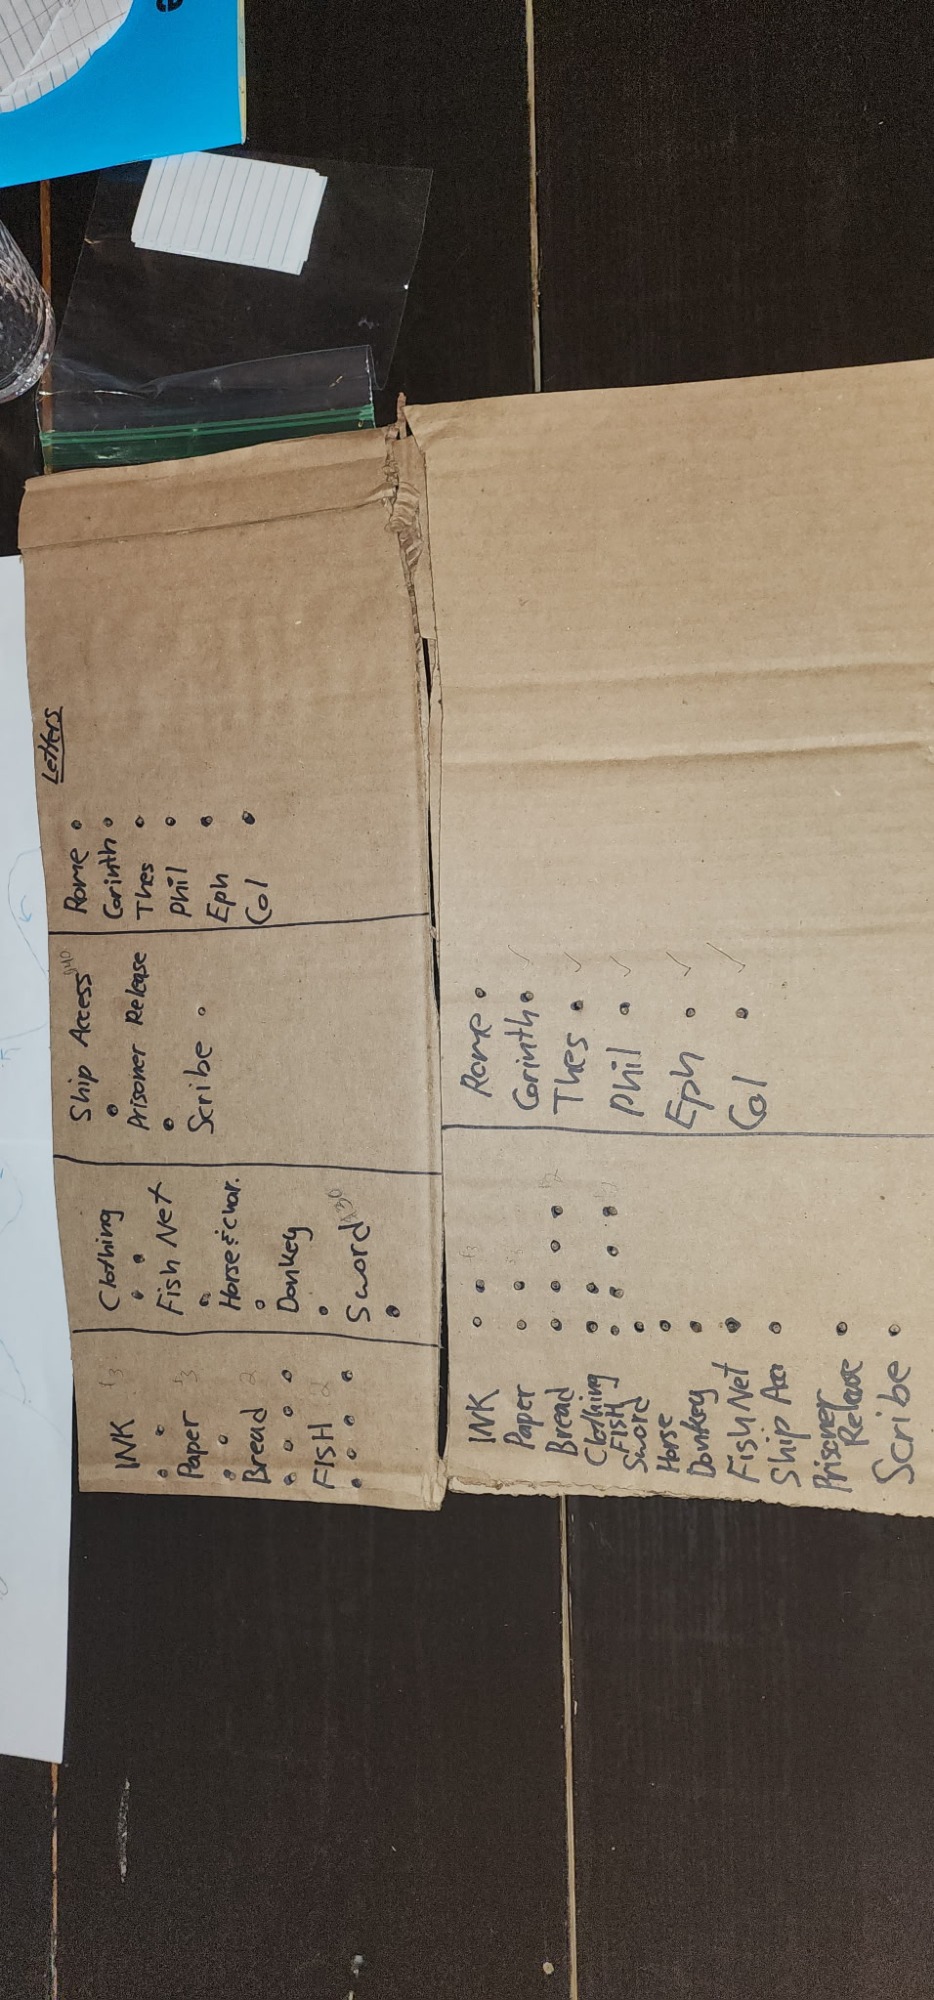 INK
Paper
Bread 2
FISH 2
Clothing
Fish Net
Horse & char.
Donkey
Sword
Ship Access
Prisoner Release
Scribe
Letters
Rome
Corinth
Thes
Phil
Eph
Col
INK
Paper
Bread
Clothing
FISH
Sword
Horse
Donkey
Fish Net
Ship Acc
Prisoner
Release
Scribe
Rome
Corinth
Thes
Phil
Eph
Col